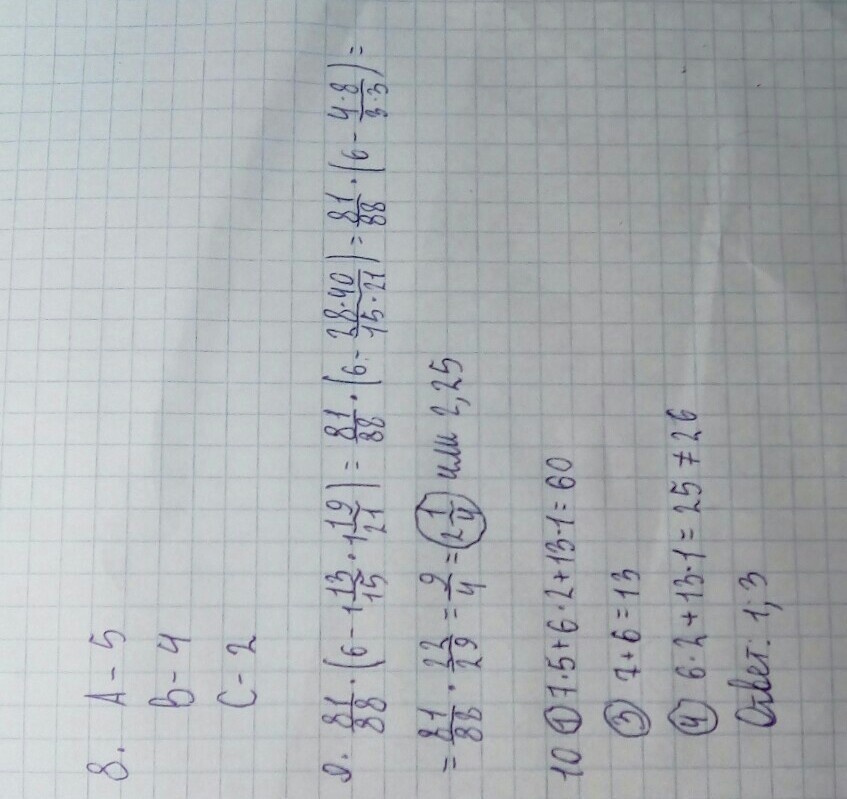 8. А - 5
В - 4
С - 2
9. 81/88 · (6 - 1 13/15 · 1 19/21) = 81/88 · (6 - 28·40/15·21) = 81/88 · (6 - 4·8/3·3) =
= 81/88 · 22/29 = 9/4 = 2 1/4 или 2,25
10 ① 7·5+6·2+13·1=60
③ 7+6=13
④ 6·2+13·1=25≠26
Ответ: 1; 3